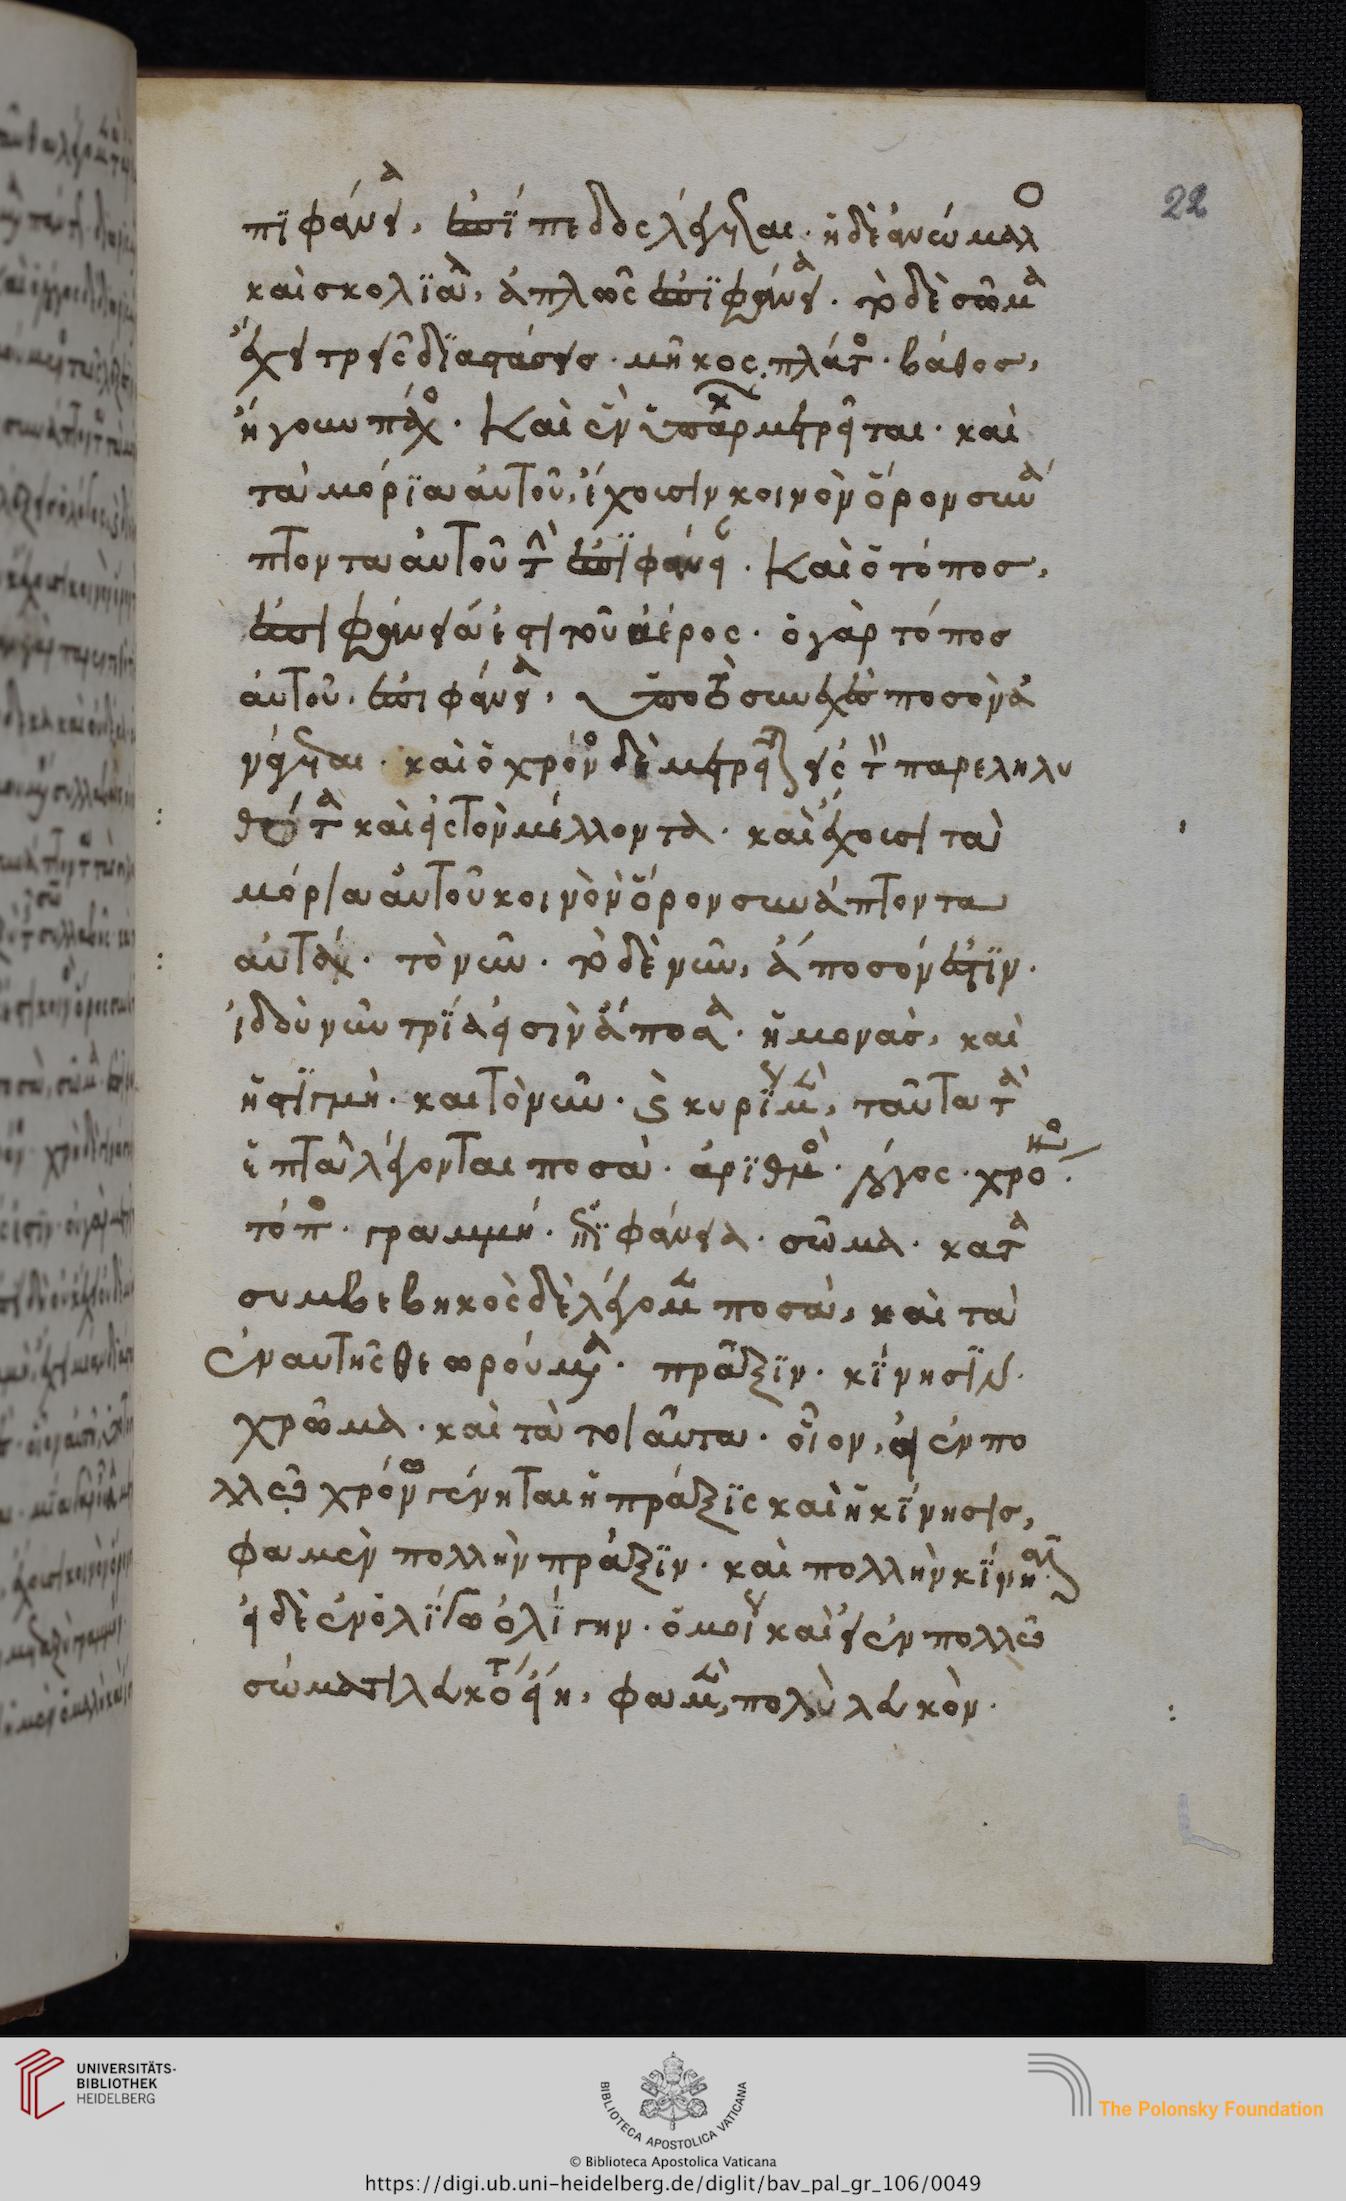 22
πϊφάνεια, ἐπίπεδος λέγεται· ἡ δὲ ἀνώμαλο
καὶ σκολϊὰ, ἁπλῶς ἐπϊφάνεια· τὸ δὲ σῶμα
ἔχει τρεῖς δϊαστάσεις· μῆκος, πλάτος· βάθος,
ἤγουν πάχος· Καὶ ἐν μετρεῖται· καὶ
τὰ μόρϊα αὐτοῦ, ἔχουσιν κοινὸν ὅρον συνά
πτοντα αὐτοῦ τὴν ἐπϊφάνειαν· Καὶ ὁ τόπος,
ἐπιφάνεια ἐστι τοῦ ἀέρος· ὁ γὰρ τόπος
αὐτοῦ, ἐπιφάνεια, ὑπὸ τὸ συνεχὲς ποσὸν ἀ
νάγεται· καὶ ὁ χρόνος δὲ μετρεῖται εἰς τὸν παρεληλυ
θότα καὶ εἰς τὸν μέλλοντα· καὶ ἔχουσι τὰ
μόρια αὐτοῦ κοινὸν ὅρον συνάπτοντα
αὐτὰ· τὸ νῦν· τὸ δὲ νῦν, ἄποσόν ἐστϊν·
ἰδοὺ νῦν τρϊα εἰσὶν ἄποσα· ἡ μονὰς, καὶ
ἡ στϊγμὴ· καὶ τὸ νῦν· κυρϊως μὲν, ταῦτα τὰ
ἑπτὰ λέγονται ποσὰ· ἀρϊθμὸς· λόγος· χρόνος·
τόπος· γραμμή· ἐπϊφάνεια· σῶμα· κατὰ
συμβεβηκὸς δὲ λέγομεν ποσὰ, καὶ τὰ
ἐν αὐτῆς θεωρούμενα· πρᾶξϊν· κΐνησϊν·
χρῶμα· καὶ τὰ τοιαῦτα· οἷον, εἰ ἐν πο
λλῶ χρόνω γένηται ἡ πρᾶξϊς καὶ ἡ κΐνησις,
φαμὲν πολλὴν πρᾶξϊν· καὶ πολλὴν κΐνησιν
εἰ δὲ ἐν ὀλΐγω ὀλΐγην· ὁμοίως καὶ εἰ ἐν πολλῶ
σώματι λευκότης εἴη, φαμὲν, πολὺ λευκὸν·
UNIVERSITÄTS-
BIBLIOTHEK
HEIDELBERG
BIBLIOTECA APOSTOLICA VATICANA
The Polonsky Foundation
© Biblioteca Apostolica Vaticana
https://digi.ub.uni-heidelberg.de/diglit/bav_pal_gr_106/0049